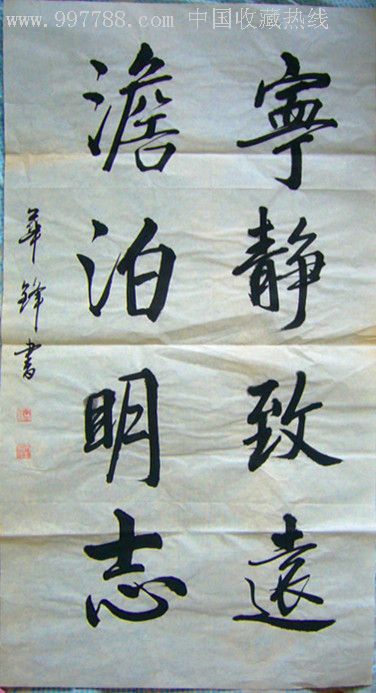 www.997788.com 中国收藏热线
寧静致遠
澹泊明志
華鋒書